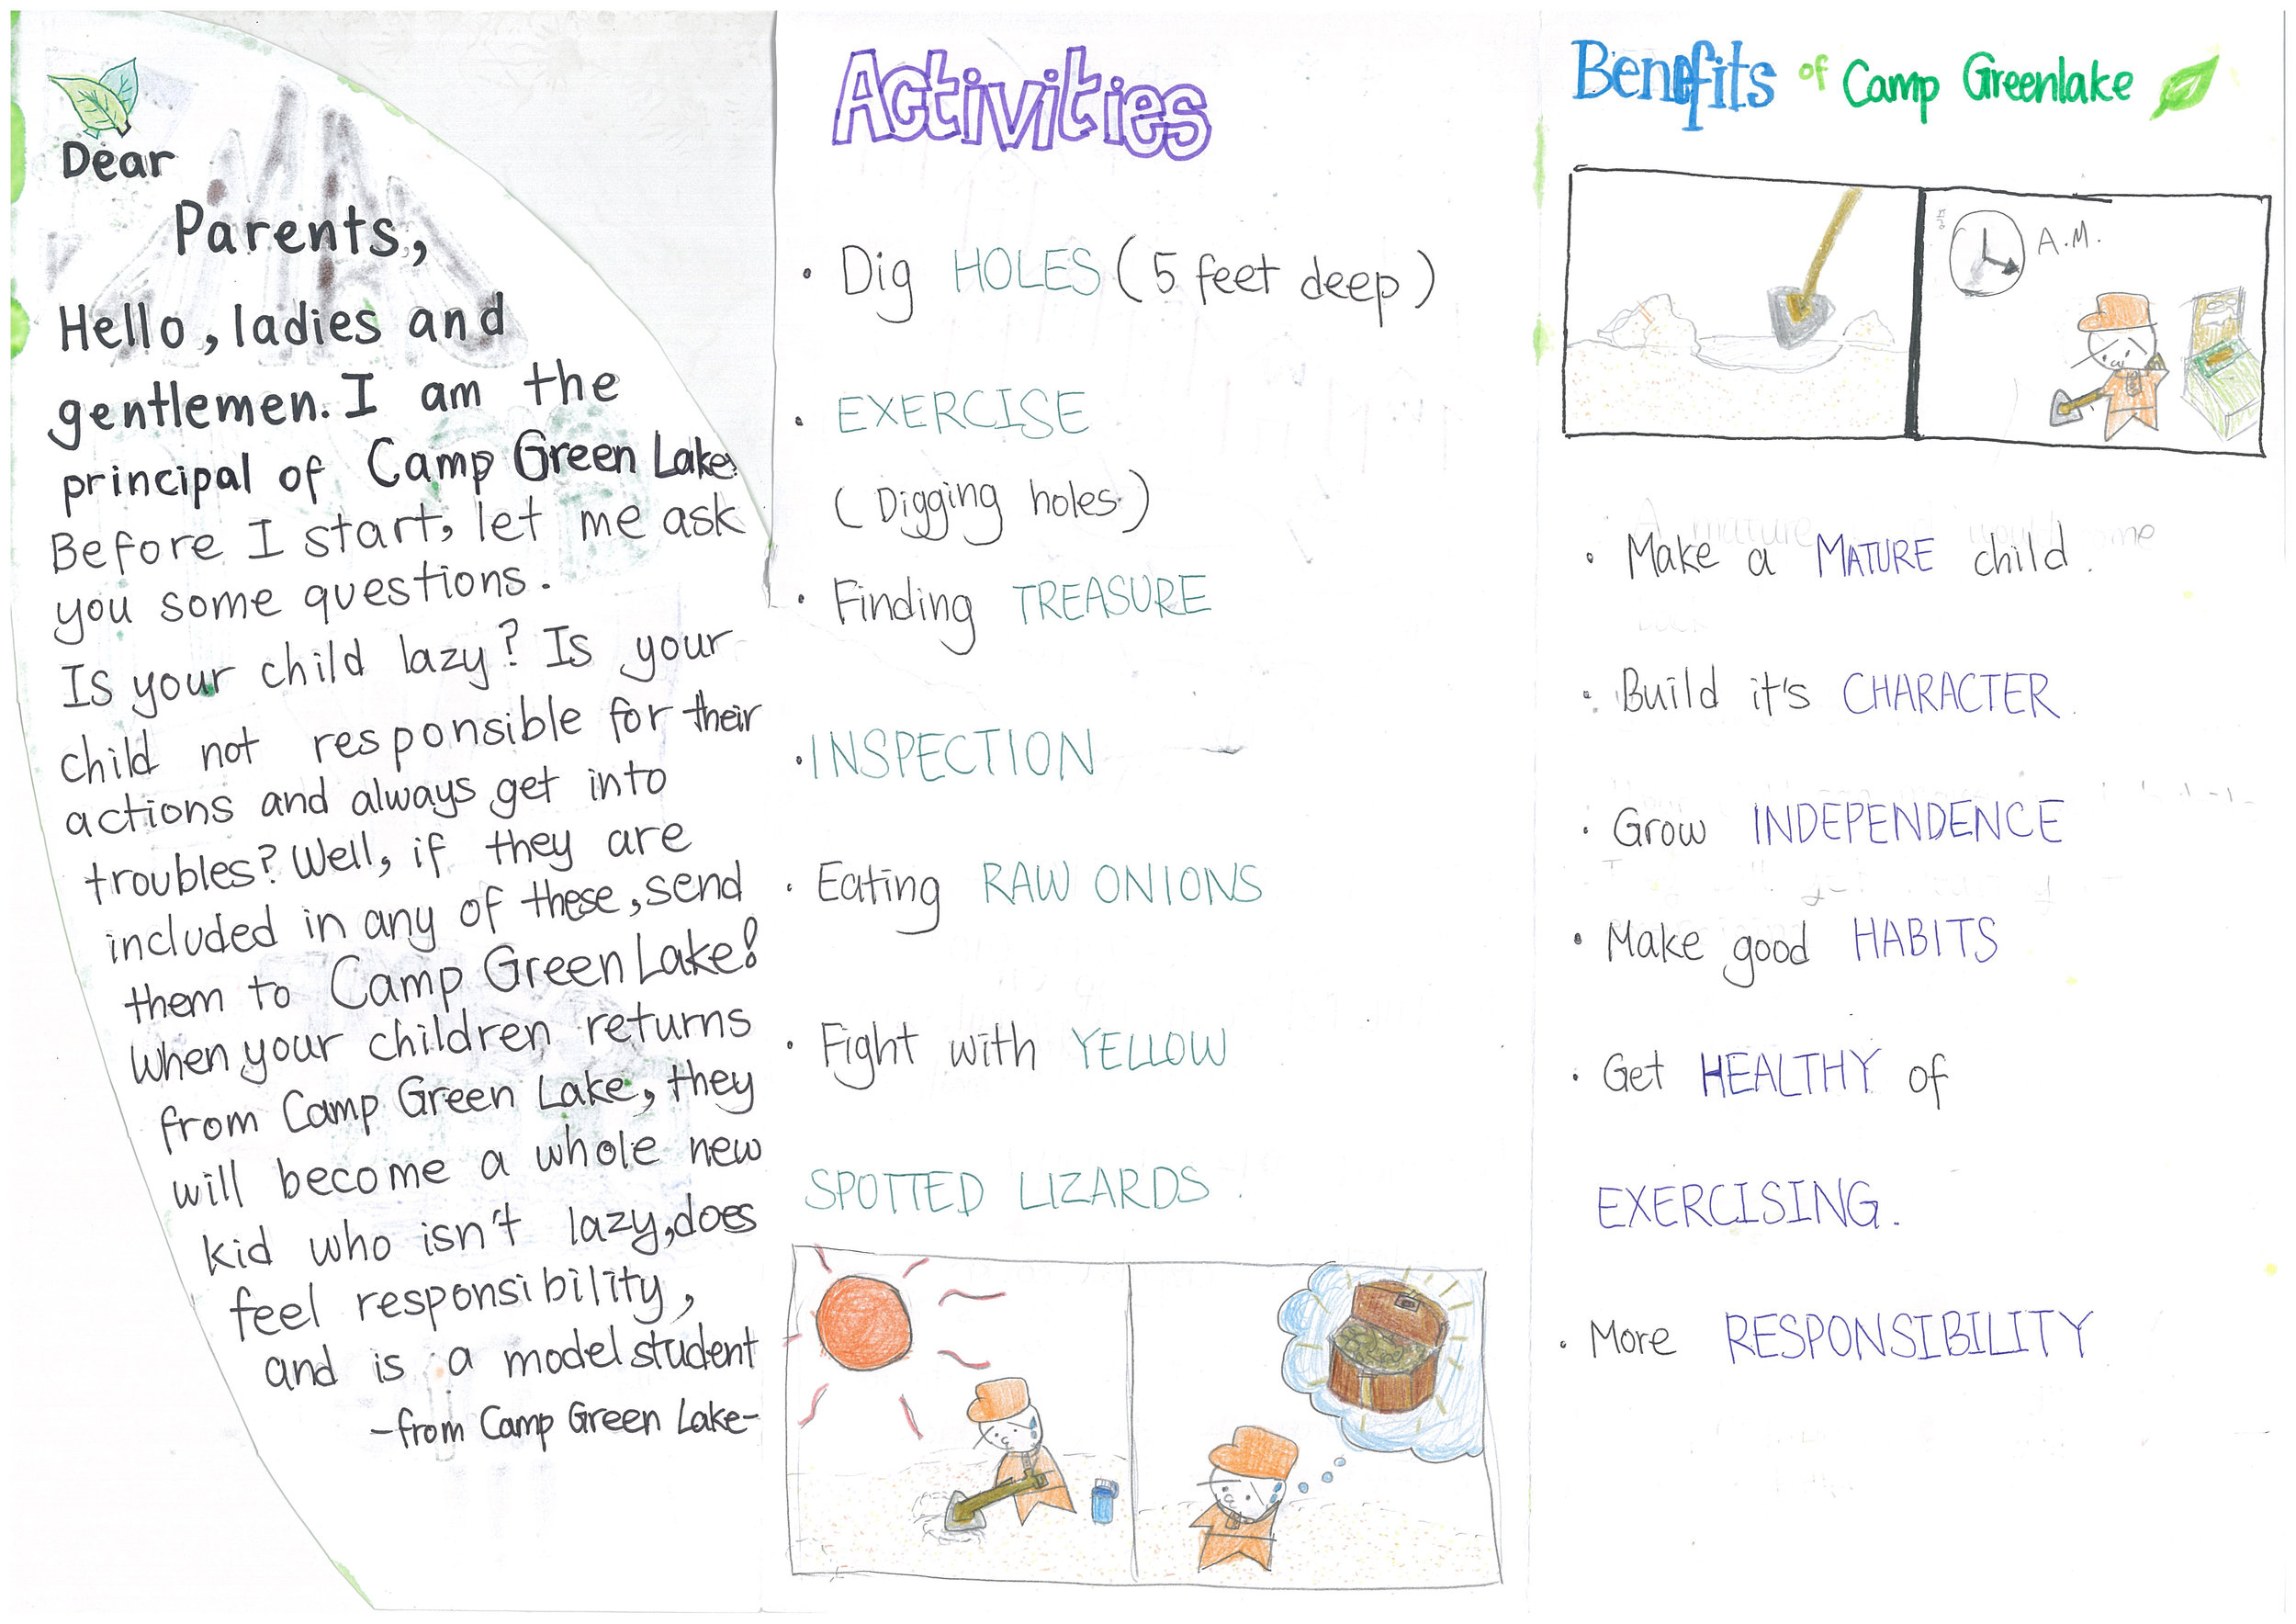 Dear
Parents,
Hello, ladies and
gentlemen. I am the
principal of Camp Green Lake.
Before I start, let me ask
you some questions.
Is your child lazy? Is your
child not responsible for their
actions and always get into
troubles? Well, if they are
included in any of these, send
them to Camp Green Lake!
When your children returns
from Camp Green Lake, they
will become a whole new
kid who isn't lazy, does
feel responsibility,
and is a model student
-from Camp Green Lake-
Activities
• Dig HOLES (5 feet deep)
• EXERCISE
(Digging holes)
• Finding TREASURE
• INSPECTION
• Eating RAW ONIONS
• Fight with YELLOW
SPOTTED LIZARDS.
Benefits of Camp Greenlake
A.M.
• Make a MATURE child.
• Build it's CHARACTER.
• Grow INDEPENDENCE
• Make good HABITS
• Get HEALTHY of
EXERCISING.
• More RESPONSIBILITY